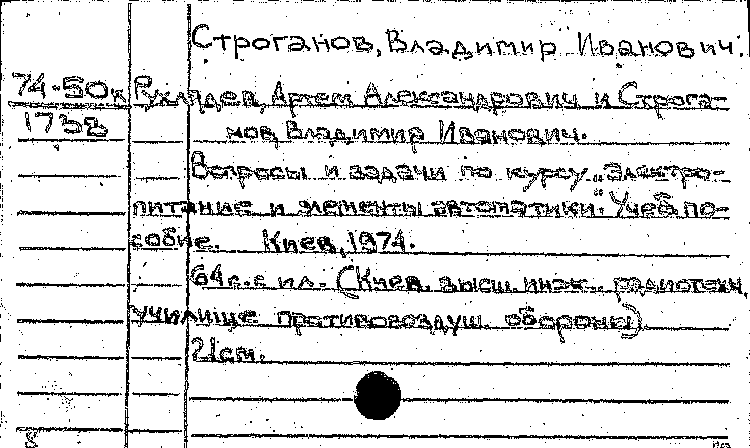 Строганов, Владимир Иванович.
74-50к Рухлядев, Артем Александрович и Строга-
1738 нов, Владимир Иванович.
Вопросы и задачи по курсу „Электро-
питание и элементы автоматики". Учеб. по-
собие. Киев, 1974.
64 с. с ил. (Киев. высш. инж. радиотехн.
училище противовоздуш. обороны)
21 см.